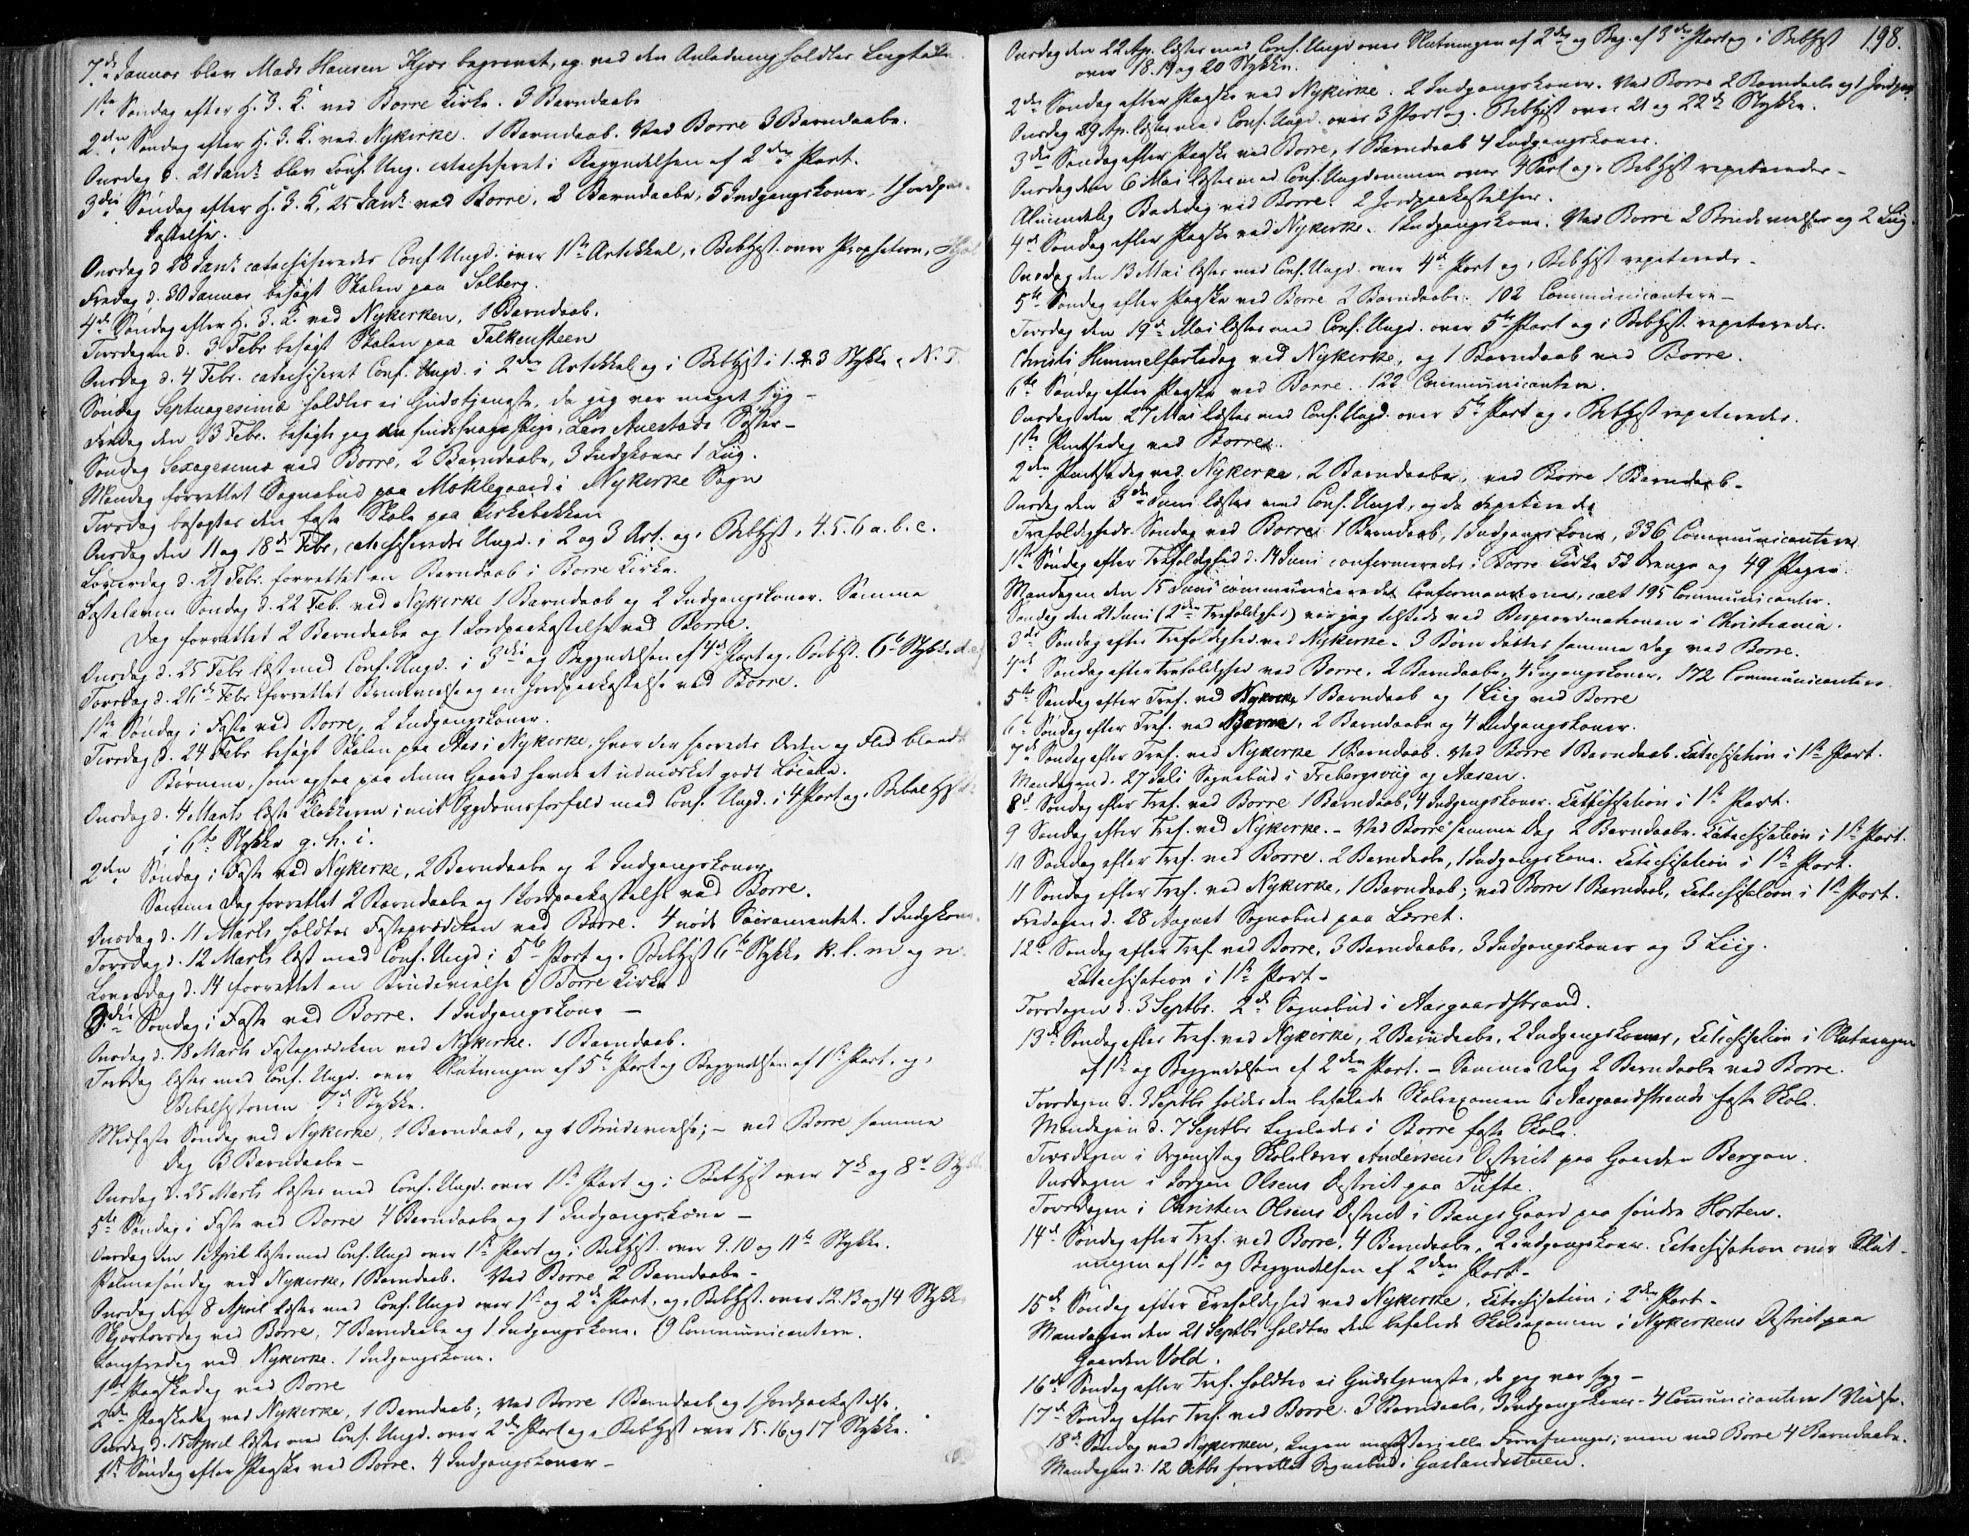 7de Januar blev Mads Hansen Kjær begravet, og ved den Anledning holdtes Liigtale
1ste Søndag efter H. 3. K. ved Borre Kirke. 3 Barndaabe
2den Søndag efter H. 3. K. ved Nykirke. 1 Barndaab. Ved Borre 3 Barndaabe.
Onsdag d. 21 Janr. blev Conf. Ung. catechiseret i Begyndelsen af 2den Part.
3die Søndag efter H. 3. K. 25 Janr. ved Borre, 2 Barndaabe, 5 Indgangskoner, 1 Jordpaa-
kastelse.
Onsdag d. 28 Janr. catechiseredes Conf. Ungd. over 1ste Artikkel, i Bibhist. over Propheterne,
Fredag d. 30 Januar besøgt Skolen paa Solberg.
4de Søndag efter H. 3. K. ved Nykirken, 1 Barndaab.
Tirsdagen d. 3 Febr besøgt Skolen paa Falkensteen
Onsdag d. 4 Febr. catechiseret Conf. Ungd. i 2den Artikkel og i Bibhist i 1. 2. 3 Stykke N. T.
Søndag Septuagesima holdtes ei Gudstjeneste, da jeg var meget syg –
Fredag den 13 Febr. besøgte jeg en sindssvag Pige, Lars Auestads Søster –
Søndag Sexagesima ved Borre, 2 Barndaabe, 3 Indgkoner 1 Liig.
Mandag forrettet Sognebud paa Moklegaard i Nykirke Sogn
Tirsdag besøgtes den faste Skole paa Kirkebakken
Onsdag den 11 og 18de Febr. catechiseredes Ungd. i 2 og 3 Art. og i Bibhist. 4. 5. 6 a. b. c.
Løverdag d. 21 Febr. forrettet en Barndaab i Borre Kirke.
Fastelavns Søndag d. 22 Feb. ved Nykirke 1 Barndaab og 2 Indgangskoner. Samme
Dag forrettet 2 Barndaabe og 1 Jordpaakastelse ved Borre.
Onsdag d. 25 Febr læst med Conf. Ungd. i 3die og Begyndelsen af 4de Part og i Bibhist. 6te Stykke d. e.
Torsdag d. 26de Febr forrettet Brudevielse og en Jordpaakastelse ved Borre.
1ste Søndag i Faste ved Borre, 2 Indgangskoner.
Tirsdag d. 24 Febr besøgt Skolen paa Aas i Nykirke, hvor der sporedes Orden og Flid blandt
Børnene, som ogsaa paa denne Gaard havde et udmærket godt Locale.
Onsdag d. 4 Marts læste Klokkeren i mit Sygdomsforfald med Conf. Ungd. i 4 Part og i Bibelhist.
i 6te Stykke g. h. i.
2den Søndag i Faste ved Nykirke, 2 Barndaabe og 2 Indgangskoner.
Samme Dag forrettet 2 Barndaabe og 1 Jordpaakastelse ved Borre.
Onsdag d. 11 Marts holdtes Fasteprædiken ved Borre. 4 nøde Sacramentet. 1 Indgkone.
Torsdag d. 12 Marts læst med Conf. Ungd i 5te Part og i Bibhist 6te Stykke k. l. m og n.
Løverdag d. 14 forrettet en Brudevielse i Borre Kirke
3die Søndag i Faste ved Borre. 1 Indgangskone –
Onsdag d. 18 Marts Fasteprædiken ved Nykirke. 1 Barndaab.
Torsdag læstes med Conf. Ungd. over Slutningen af 5te Part og Begyndelsen af 1ste Part, og i
Bibelhistorien 7de Stykke.
Midfaste Søndag ved Nykirke, 1 Barndaab, og 1 Brudevielse; – ved Borre samme
Dag 3 Barndaabe –
Onsdag d. 25 Marts læstes med Conf. Ungd. over 1ste Part og i Bibhist over 7de og 8de Stykke
5te Søndag i Faste ved Borre 4 Barndaabe og 1 Indgangskone –
Onsdag den 1 April læstes med Conf. Ungd over 1ste Part og i Bibhist. over 9. 10 og 11te Stykke.
Palmesøndag ved Nykirke, 1 Barndaab. Ved Borre 2 Barndaabe –
Onsdag den 8 April læstes med Conf. Ungd over 1ste og 2de Part, og i Bibhist. over 12. 13 og 14 Stykke
Skjærtorsdag ved Borre, 7 Barndaabe og 1 Indgangskone. 19 Communicantere.
Langfredag ved Nykirke. 1 Indgangskone.
1ste Paaskedag ved Borre
2den Paaskedag ved Nykirke, 1 Barndaab; ved Borre 1 Barndaab og 1 Jordpaakastelse.
Onsdag d. 15 April læstes med Conf. Ungd. over 2den Part og i Bibhist over 15. 16 og 17 Stykke.
1ste Søndag efter Paaske ved Borre. 4 Indgangskoner –
198.
Onsdag den 22 Ap. læstes med Conf. Ungd over Slutningen af 2den og Beg. af 3die Part og i Bibhist
over 18. 19 og 20 Stykke.
2den Søndag efter Paaske ved Nykirke. 2 Indgangskoner. Ved Borre 2 Barndaabe og 1 Jordpaa.
Onsdag 29 Ap. læstes med Conf. Ungd. over 3 Part og i Bibhist over 21 og 22de Stykke.
3die Søndag efter Paaske ved Borre, 1 Barndaab 4 Indgangskoner.
Onsdag den 6 Mai læstes med Conf. Ungdommen over 4 Part og i Bibhist repeteredes –
Almindelig Bededag ved Borre. 2 Jordpaakastelser.
4de Søndag efter Paaske ved Nykirke. 1 Indgangskone. Ved Borre 2 Brudevielser og 2 Liig.
Onsdag den 13 Mai læstes med Conf. Ungd. over 4de Part og i Bibhist repeteredes –
5te Søndag efter Paaske ved Borre 2 Barndaabe. 102 Communicantere –
Tirsdag den 19de Mai læstes med Conf. Ungd. over 5te Part og i Bibhist. repeteredes.
Christi Himmelfartsdag ved Nykirke, og 1 Barndaab ved Borre.
6te Søndag efter Paaske ved Borre. 122 Communicantere.
Onsdag den 27 Mai læstes med Conf. Ungd. over 5te Part og i Bibhist repeteredes.
1ste Pintsedag ved Borre.
2den Pintsedag ved Nykirke, 2 Barndaabe, ved Borre 1 Barndaab –
Onsdag den 3die Juni læstes med Conf. Ungd. og da repeteredes
Trefoldigheds Søndag ved Borre 1 Barndaab, 1 Indgangskone, 336 Communicantere
1ste Søndag efter Trefoldighed d. 14 Juni confirmeredes i Borre Kirke 52 Drenge og 49 Piger.
Mandagen den 15 Juni communicerede Confirmanderne, ialt 195 Communicanter.
Søndag den 21 Juni (2den Trefoldighed) var jeg tilstede ved Bispeordinationen i Christiania.
3die Søndag efter Trefoldighed ved Nykirke – 3 Børn døbtes samme Dag ved Borre.
4de Søndag efter Trefoldighed ved Borre. 2 Barndaabe, 4 Ingangskoner, 172 Communicantere.
5te Søndag efter Tref. ved Nykirke, 1 Barndaab og 1 Liig ved Borre
6te Søndag efter Tref. ved Borre, 2 Barndaabe og 4 Indgangskoner.
7de Søndag efter Tref. ved Nykirke 1 Barndaab. Ved Borre 1 Barndaab. Catechisation i 1ste Part.
Mandagen d. 27 Juli Sognebud i Frebergsviig og Aasen.
8de Søndag efter Tref. ved Borre 1 Barndaab, 4 Indgangskoner. Catechisation i 1ste Part.
9 Søndag efter Tref. ved Nykirke. – Ved Borre samme Dag 2 Barndaabe. Catechisation i 1ste Part.
10 Søndag efter Tref. ved Borre. 2 Barndaabe, 1 Indgangskone. Catechisation i 1ste Part.
11 Søndag efter Tref. ved Nykirke, 1 Barndaab; ved Borre 1 Barndaab, Catechisation i 1ste Part.
Fredagen d. 28 August Sognebud paa Lørret.
12te Søndag efter Tref. ved Borre, 3 Barndaabe, 3 Indgangskoner og 3 Liig.
Catechisation i 1ste Part –
Torsdagen d. 3 Septbr. 2de Sognebud i Aasgaardstrand.
13de Søndag efter Tref. ved Nykirke, 2 Barndaabe, 2 Indgangskoner, Catechisation i Slutningen
af 1ste og Begyndelsen af 2den Part. – Samme Dag 2 Barndaabe ved Borre.
Torsdagen d. 3 Septbr holdtes den befalede Skoleexamen i Aasgaardstrands faste Skole.
Mandagen d. 7 Septbr ligeledes i Borre faste Skole.
Tirsdagen i Organist og Skolelærer Andersens District paa Gaarden Bergan.
Onsdagen i Jørgen Olsens District paa Tufte.
Torsdagen i Christen Olsens District i Bangs Gaard paa søndre Horten.
14de Søndag efter Tref. ved Borre, 4 Barndaabe, 2 Indgangskoner. Catechisation over Slut-
ningen af 1ste og Begyndelsen af 2den Part –
15de Søndag efter Trefoldighed ved Nykirke. Catechisation i 2den Part –
Mandagen den 21 Septbr holdtes den befalede Skoleexamen i Nykirkens District paa
Gaarden Vold.
16de Søndag efter Tref. holdtes ei Gudstjeneste, da jeg var syg –
17de Søndag efter Tref. ved Borre. 3 Barndaabe, 3 Indgangskoner – 4 Communicantere 1 Vielse.
18de Søndag ved Nykirken, ingen ministerielle Forretninger; men ved Borre 4 Barndaabe.
Mandagen d. 12 Octbr forrettet Sognebud i Gaslandsstuen.